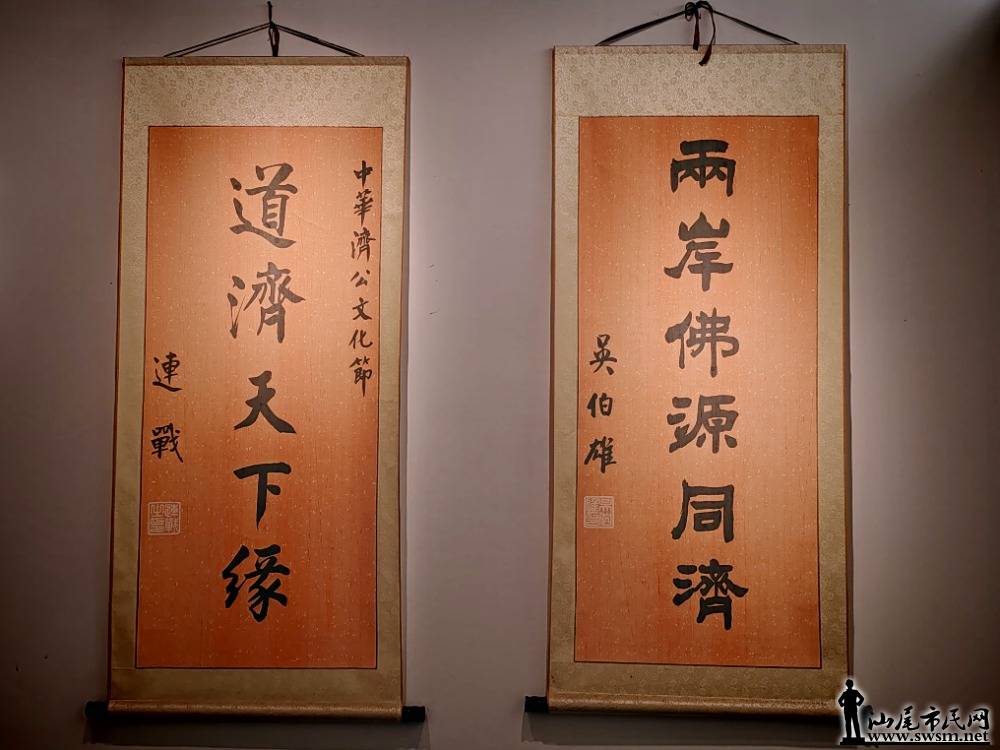 兩岸佛源同濟
吳伯雄
中華濟公文化節
道濟天下緣
連戰
汕尾市民网
www.swsm.net